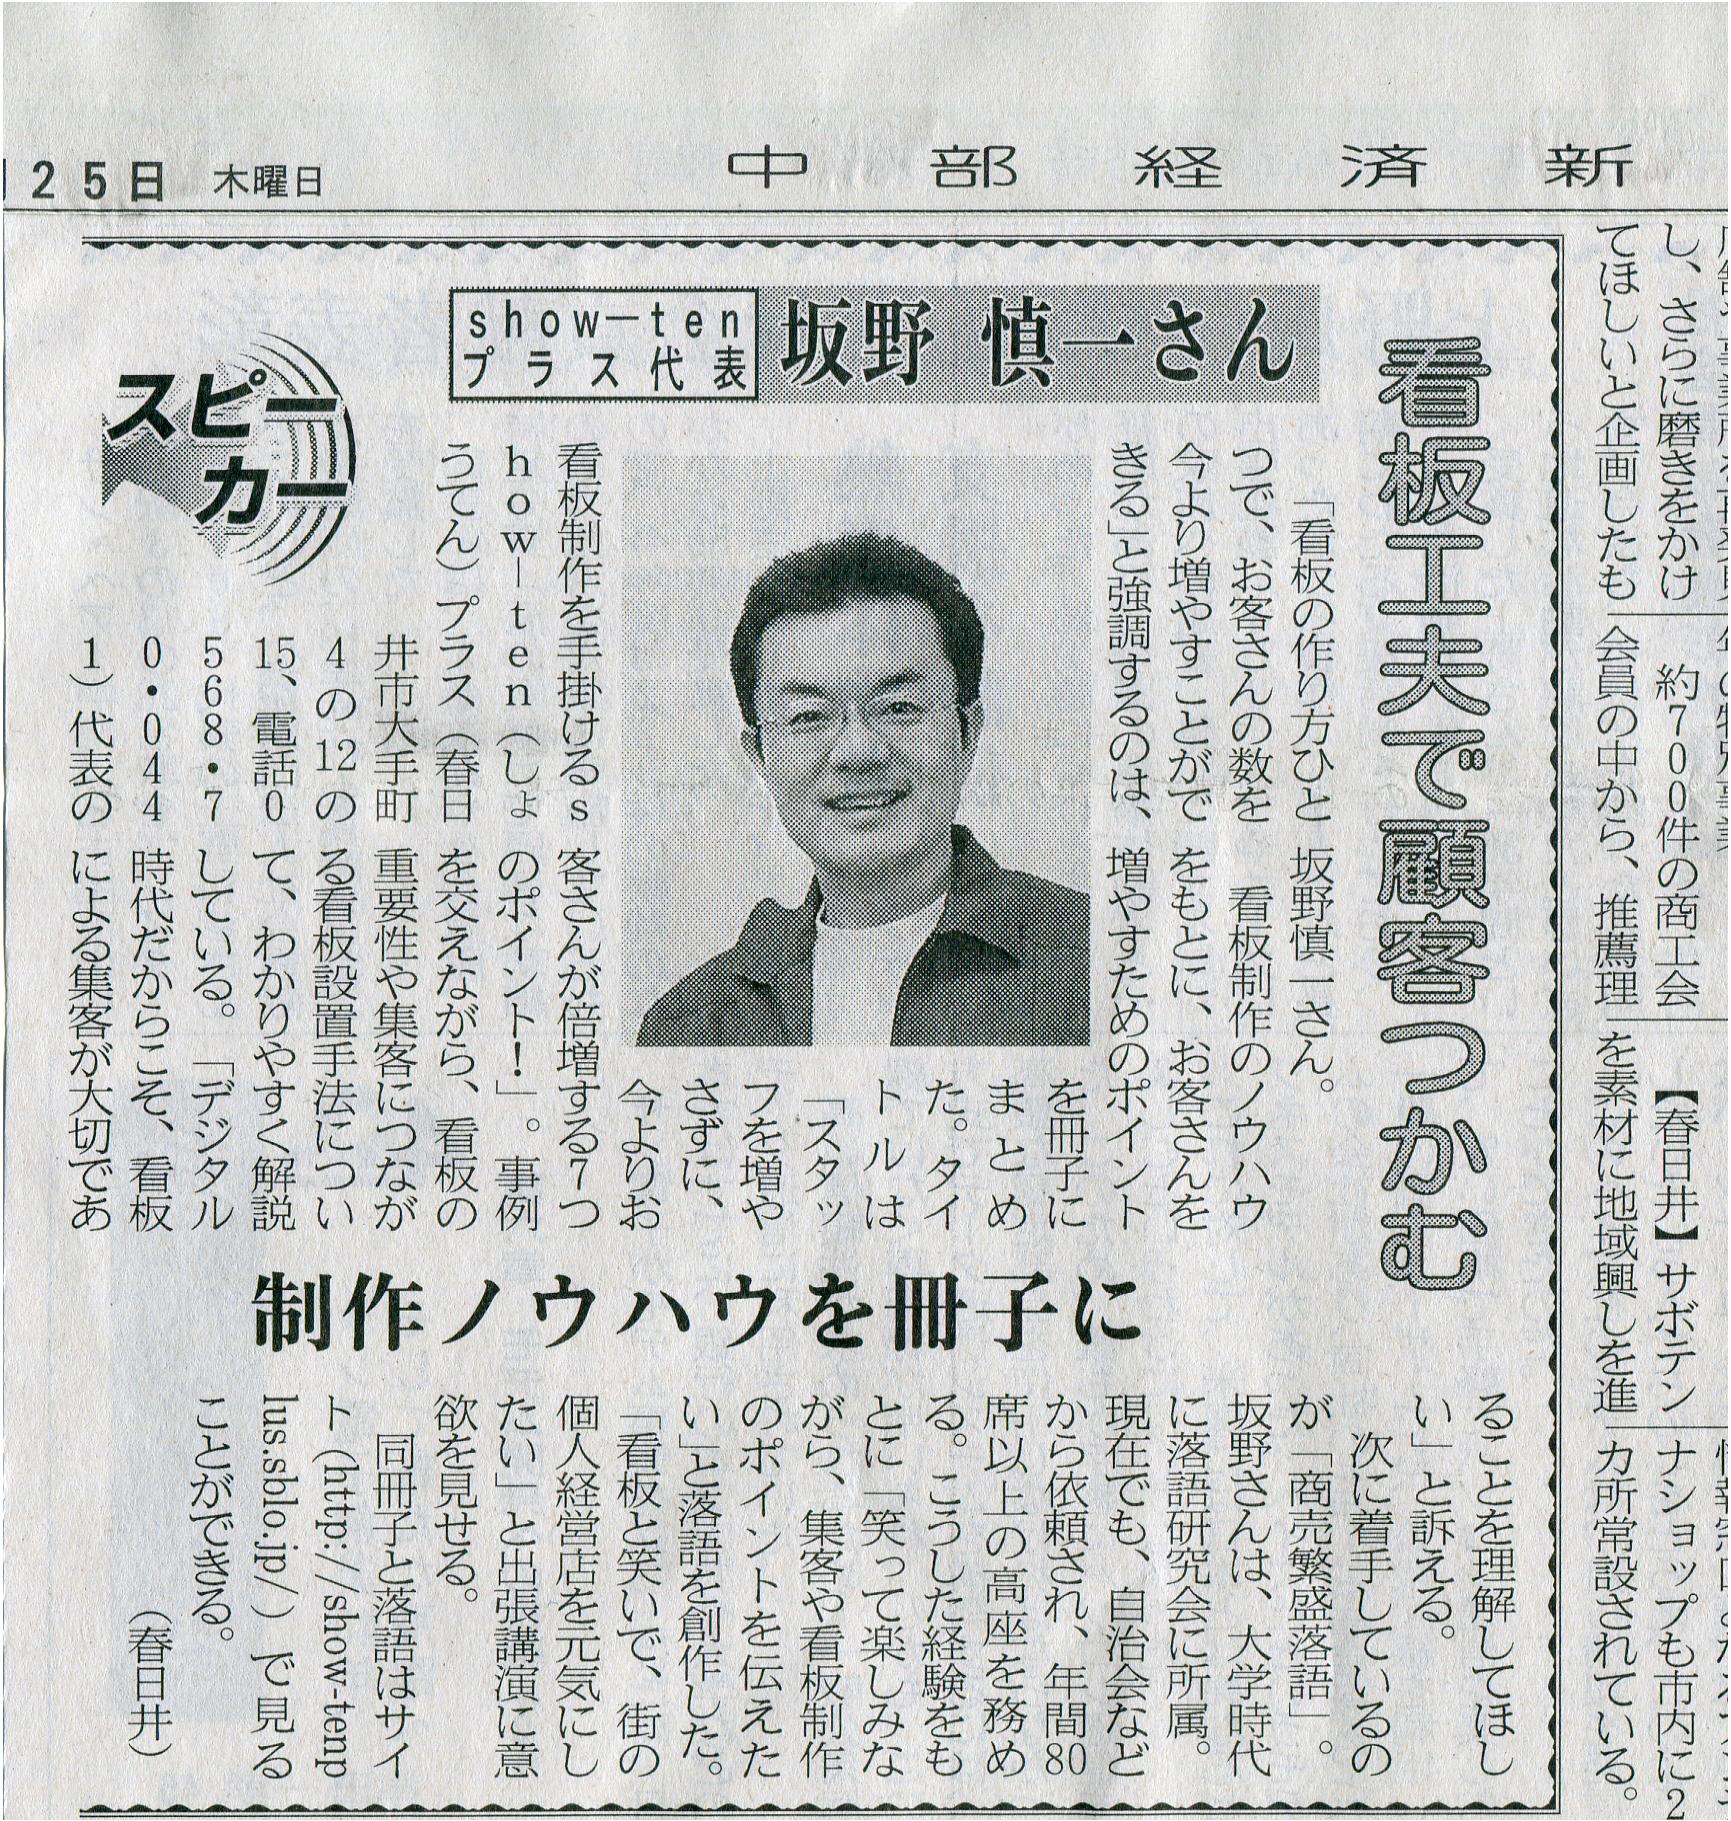 25日 木曜日
中部経済新
スピーカー
show―ten
プラス代表
坂野 慎一さん
看板工夫で顧客つかむ
「看板の作り方ひと
つで、お客さんの数を
今より増やすことがで
きる」と強調するのは、
看板制作を手掛けるs
how―ten（しょ
うてん）プラス（春日
井市大手町
4の12の
15、電話0
568・7
0・044
1）代表の
坂野慎一さん。
看板制作のノウハウ
をもとに、お客さんを
増やすためのポイント
を冊子に
まとめ
た。タイ
トルは
「スタッ
フを増や
さずに、
今よりお
客さんが倍増する7つ
のポイント!」。事例
を交えながら、看板の
重要性や集客につなが
る看板設置手法につい
て、わかりやすく解説
している。「デジタル
時代だからこそ、看板
による集客が大切であ
制作ノウハウを冊子に
ることを理解してほし
い」と訴える。
次に着手しているの
が「商売繁盛落語」。
坂野さんは、大学時代
に落語研究会に所属。
現在でも、自治会など
から依頼され、年間80
席以上の高座を務め
る。こうした経験をも
とに「笑って楽しみな
がら、集客や看板制作
のポイントを伝えた
い」と落語を創作した。
「看板と笑いで、街の
個人経営店を元気にし
たい」と出張講演に意
欲を見せる。
同冊子と落語はサイ
ト（http://show-tenp
lus.sblo.jp/）で見る
ことができる。
（春日井）
し、さらに磨きをかけ
てほしいと企画したも
約700件の商工会
会員の中から、推薦理
【春日井】サボテン
を素材に地域興しを進
ナショップも市内に2
カ所常設されている。